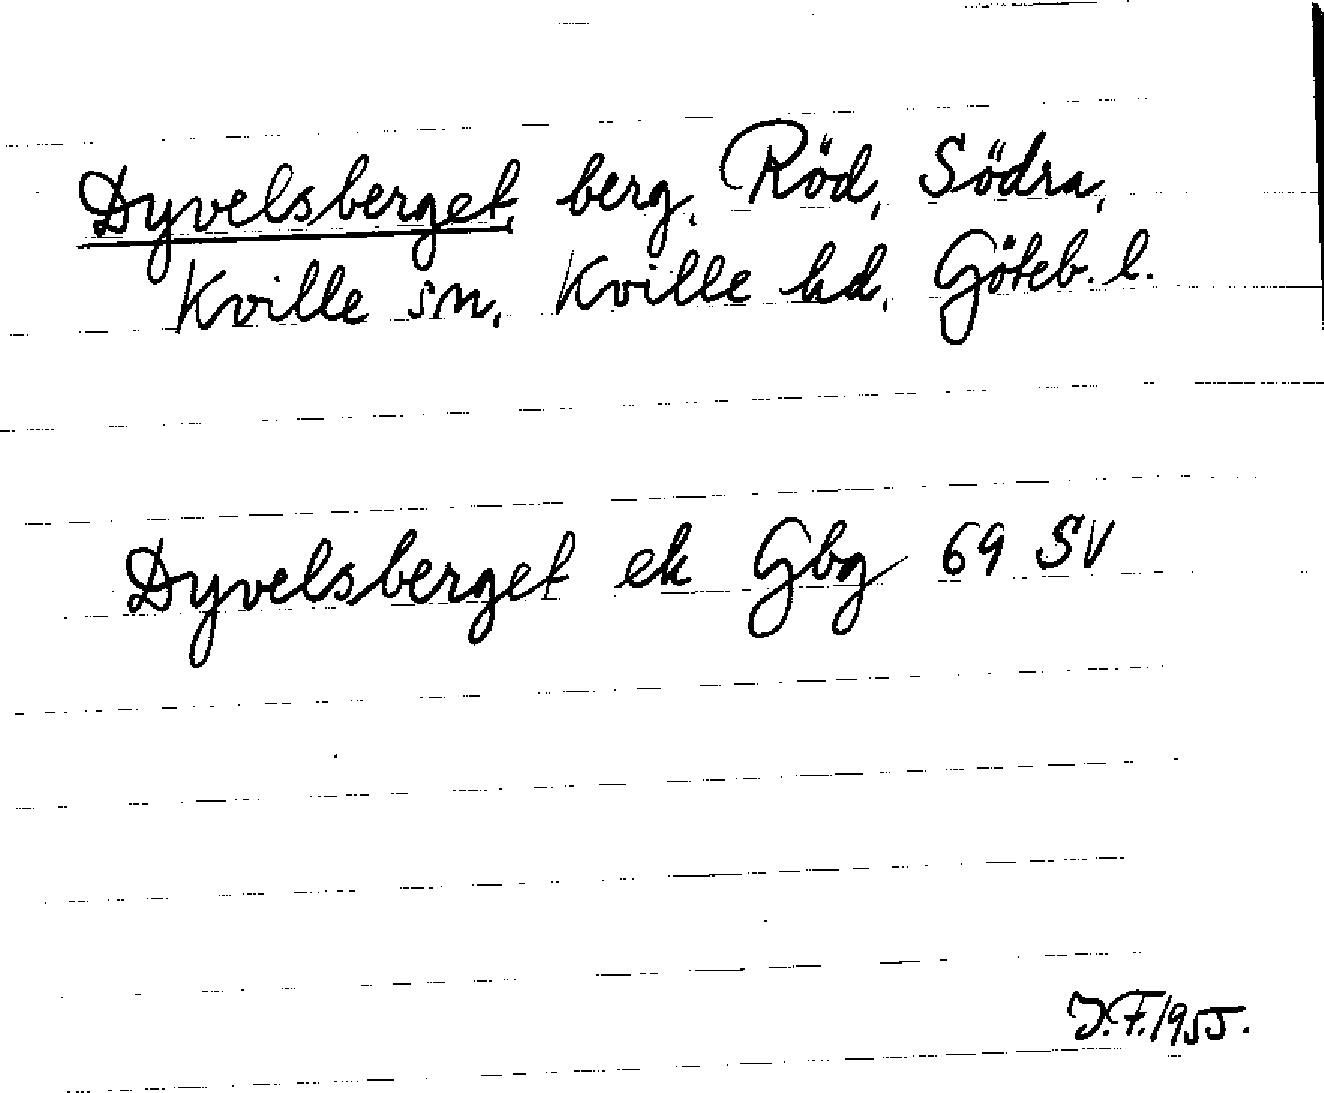 Dyvelsberget, berg, Röd, Södra,
Kville sn, Kville hd, Göteb. l.
Dyvelsberget ek Gbg 69 SV
J.F. 1955.